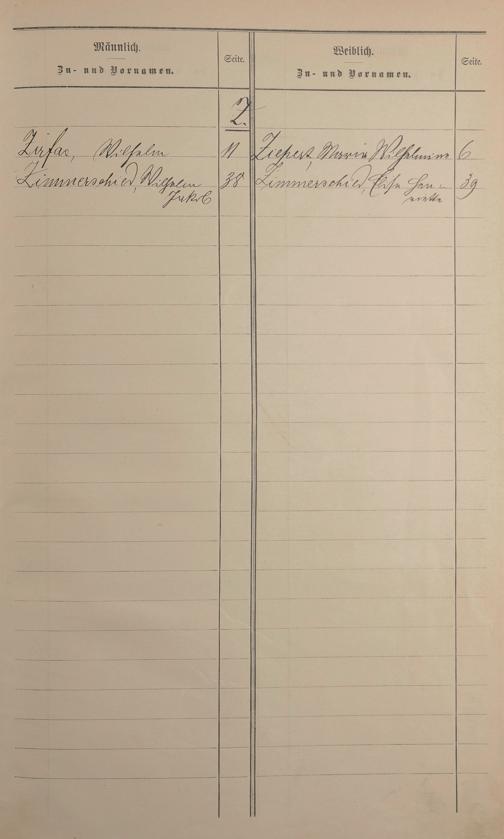 Männlich.
Zu- und Vornamen.
Seite.
Weiblich.
Zu- und Vornamen.
Seite.
Z.
Zirfas, Wilhelm 11
Zimmerschied, Wilhelm 38
Jakob
Ziepert, Maria Wilhelmine 6
Zimmerschied, Elise Hen- 39
riette